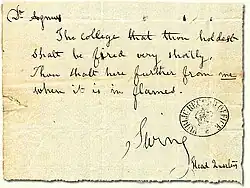 The College that thou holdest
Shalt be fired very shortly.
Thou shalt here further from me
when it is in flames.
Swing
Head Quarters
PUBLIC RECORD OFFICE